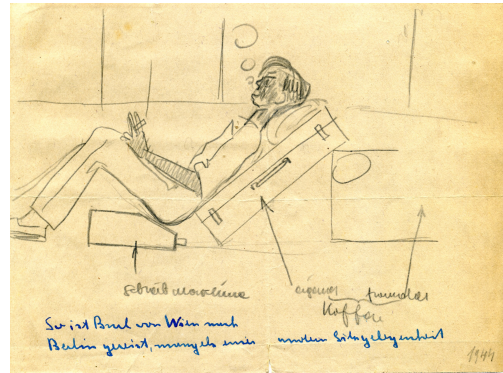 Schreibmaschine
eigener fremder
Koffer
So ist Bruel von Wien nach
Berlin gereist, mangels einer andern Sitzgelegenheit
1944